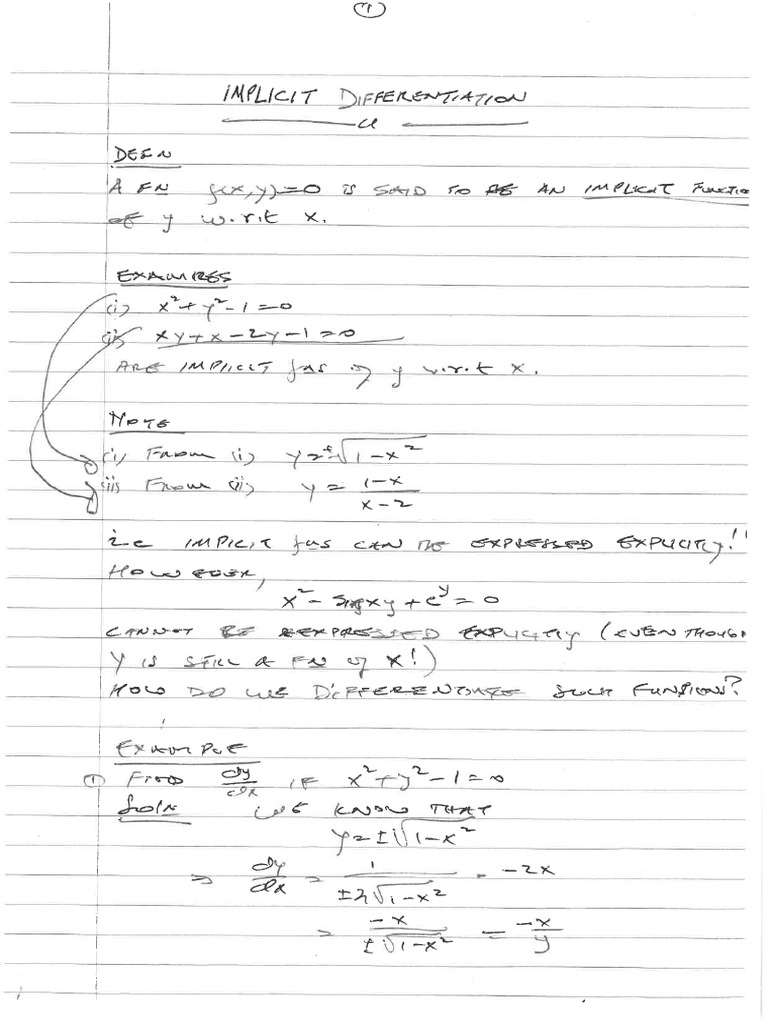 1
IMPLICIT DIFFERENTIATION
DEFN
A FN f(x,y)=0 IS SAID TO BE AN IMPLICIT FUNCTION
OF y w.r.t x.
EXAMPLES
(i) x²+y²-1=0
(ii) xy+x-2y-1=0
ARE IMPLICIT fns of y w.r.t x.
NOTE
(i) FROM (i) y=±√(1-x²)
(ii) FROM (ii) y = (1-x)/(x-2)
i.e IMPICIT fns CAN BE EXPRESSED EXPLICITLY!!
HOWEVER,
x² - sin xy + e^y = 0
CANNOT BE EXPRESSED EXPLICITLY (EVEN THOUGH
Y IS STILL A FN of X!)
HOW DO WE DIFFERENTIATE SUCH FUNCTIONS?
EXAMPLE
① FIND dy/dx IF x²+y²-1=0
Soln WE KNOW THAT
y=±√(1-x²)
⇒ dy/dx = 1/(±2√(1-x²)) · -2x
= -x/(±√(1-x²)) = -x/y